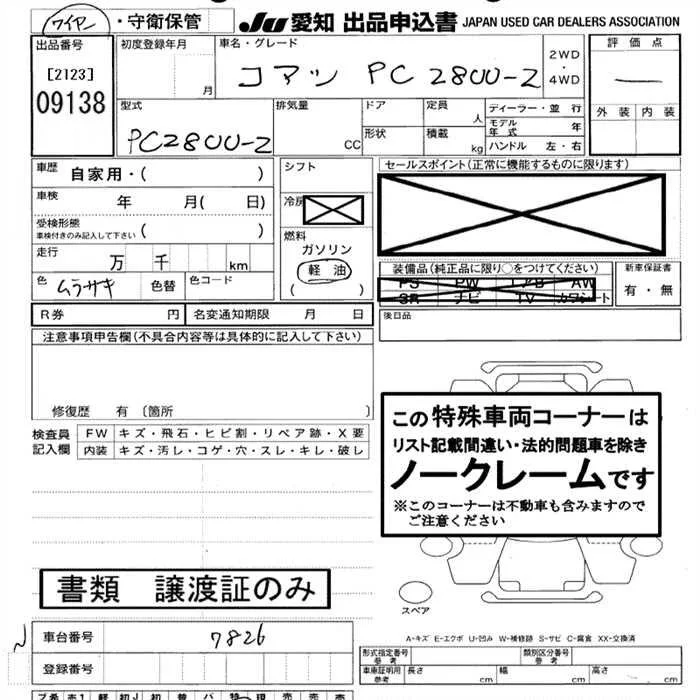 ワイヤー・守衛保管
JU 愛知 出品申込書 JAPAN USED CAR DEALERS ASSOCIATION
出品番号
[2123]
09138
初度登録年月
月
車名・グレード
コマツ PC 2800-2
2WD
・
4WD
評価点
外装 内装
型式
PC2800-2
排気量
CC
ドア
形状
定員
人
積載
kg
ディーラー・並行
モデル年式 年
ハンドル 左・右
車歴 自家用・( )
車検 年 月( 日)
受検形態
車検付きのみ記入して下さい ( )
走行 万 千 km
色 ムラサキ 色替 色コード
シフト
冷房
燃料
ガソリン
軽油
( )
セールスポイント(正常に機能するものに限ります)
装備品(純正品に限り○をつけてください)
PS PW エアB AW
SR ナビ TV カワシート
新車保証書
有・無
R券 円 名変通知期限 月 日
後日品
注意事項申告欄(不具合内容等は具体的に記入して下さい)
修復歴 有 〔箇所 〕
検査員記入欄
FW キズ・飛石・ヒビ割・リペア跡・X要
内装 キズ・汚レ・コゲ・穴・スレ・キレ・破レ
この特殊車両コーナーは
リスト記載間違い・法的問題車を除き
ノークレームです
※このコーナーは不動車も含みますので
ご注意ください
スペア
書類 譲渡証のみ
A-キズ E-エクボ U-凹み W-補修跡 S-サビ C-腐食 XX-交換済
車台番号 7826
登録番号
形式指定番号 参考
類別区分番号 参考
車車証明用 参考 長さ cm 幅 cm 高さ cm